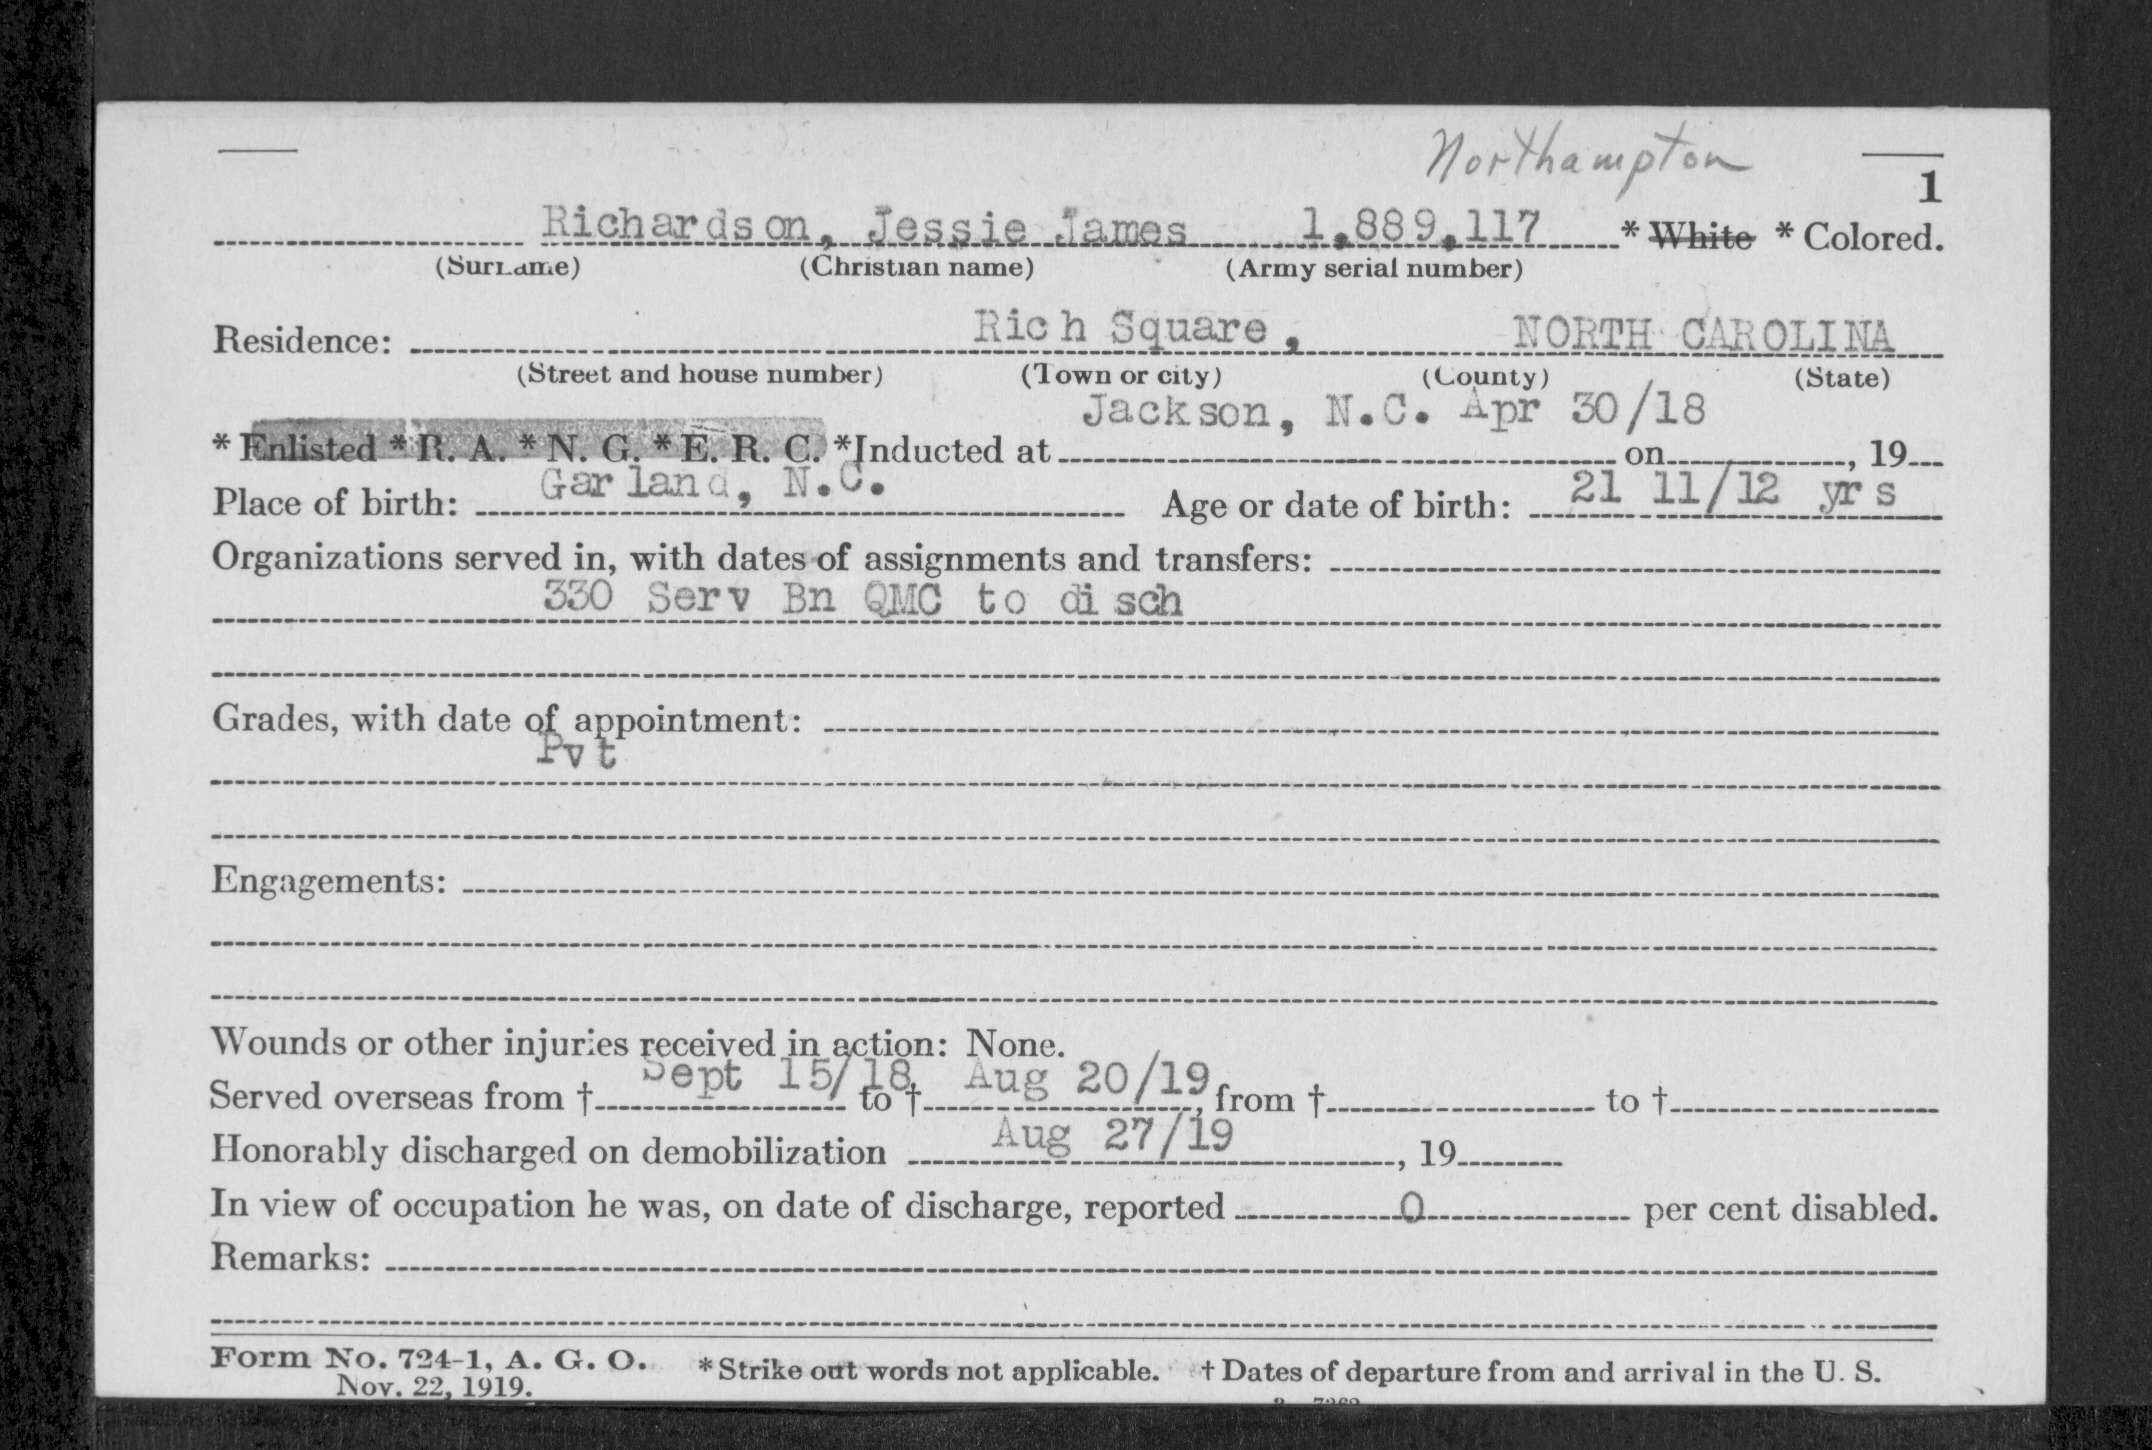 Northampton
1
Richardson, Jessie James 1,889,117 * White * Colored.
(Surname) (Christian name) (Army serial number)
Residence: Rich Square, NORTH CAROLINA
(Street and house number) (Town or city) (County) (State)
Jackson, N.C. Apr 30/18
* Enlisted * R. A. * N. G. * E. R. C. *Inducted at on , 19
Place of birth: Garland, N.C. Age or date of birth: 21 11/12 yrs
Organizations served in, with dates of assignments and transfers:
330 Serv Bn QMC to disch
Grades, with date of appointment:
Pvt
Engagements:
Wounds or other injuries received in action: None.
Served overseas from † Sept 15/18 to † Aug 20/19, from † to †
Honorably discharged on demobilization Aug 27/19, 19
In view of occupation he was, on date of discharge, reported 0 per cent disabled.
Remarks:
Form No. 724-1, A. G. O. * Strike out words not applicable. † Dates of departure from and arrival in the U. S.
Nov. 22, 1919.